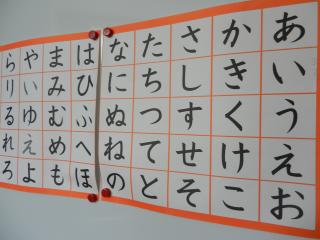 あいうえお
かきくけこ
さしすせそ
たちつてと
なにぬねの
はひふへほ
まみむめも
やいゆえよ
らりるれろ